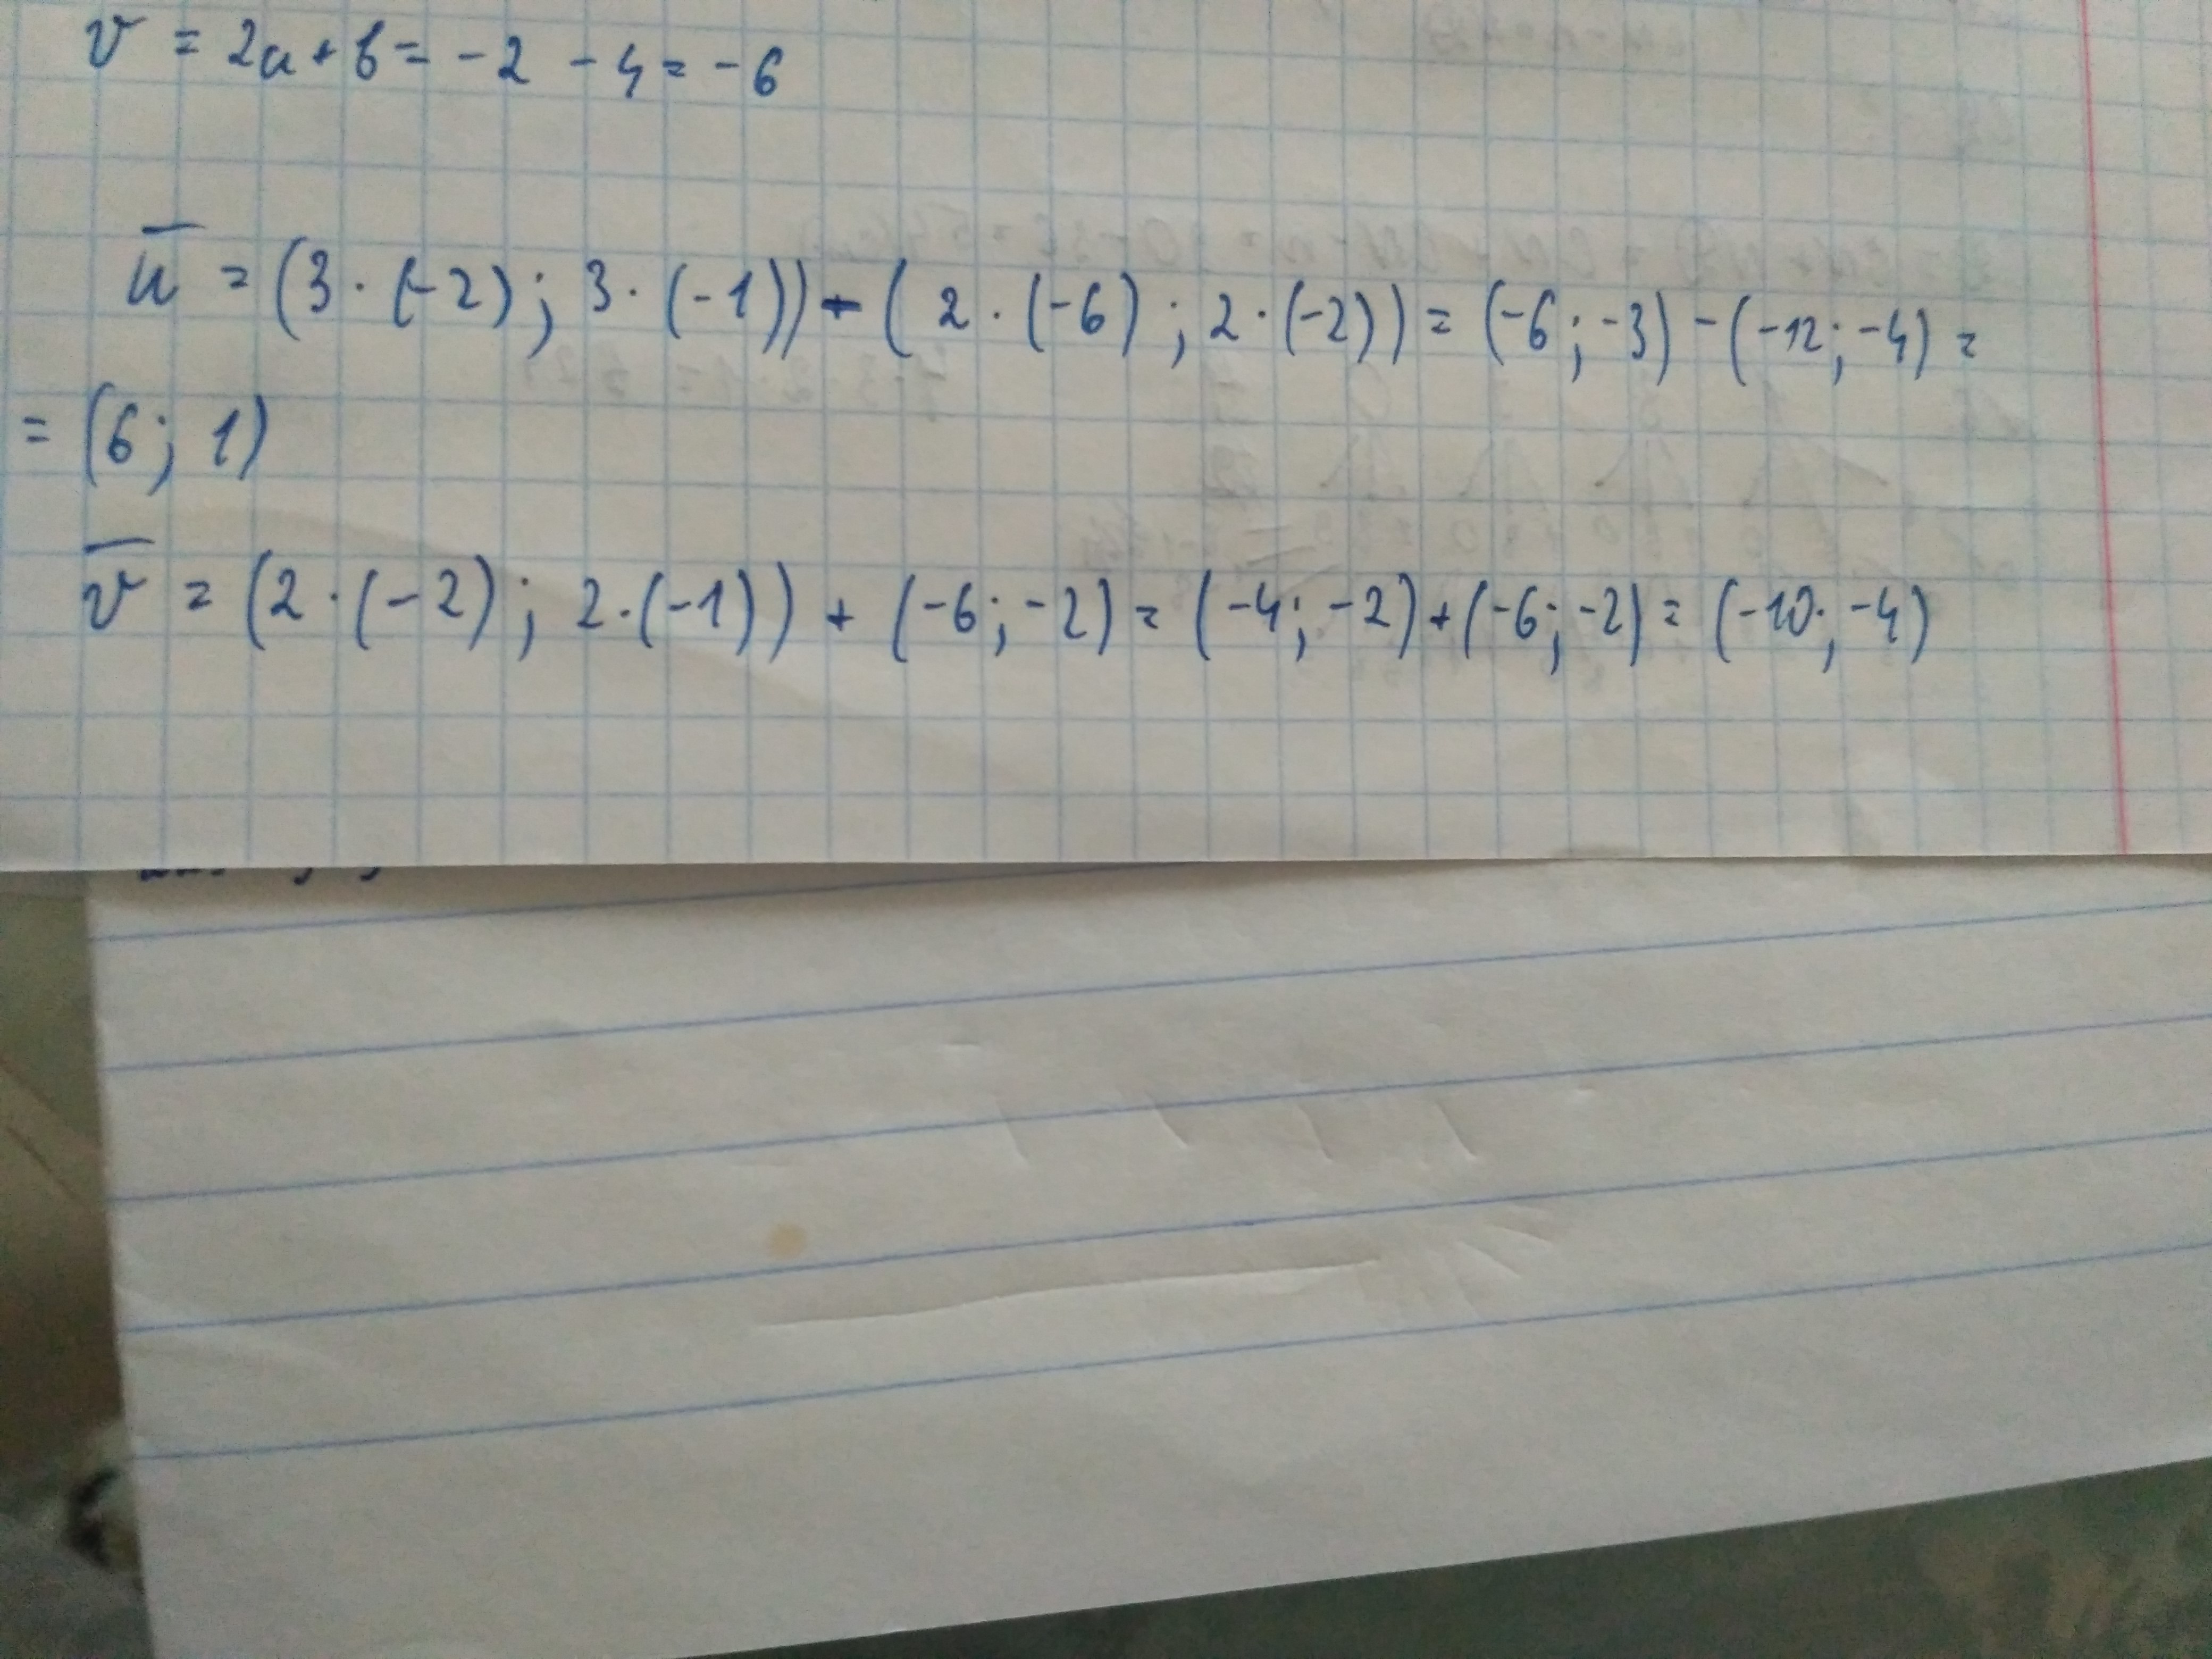 v = 2a + b = -2 - 4 = -6
u̅ = (3·(-2); 3·(-1)) - (2·(-6); 2·(-2)) = (-6; -3) - (-12; -4) =
= (6; 1)
v̅ = (2·(-2); 2·(-1)) + (-6; -2) = (-4; -2) + (-6; -2) = (-10; -4)